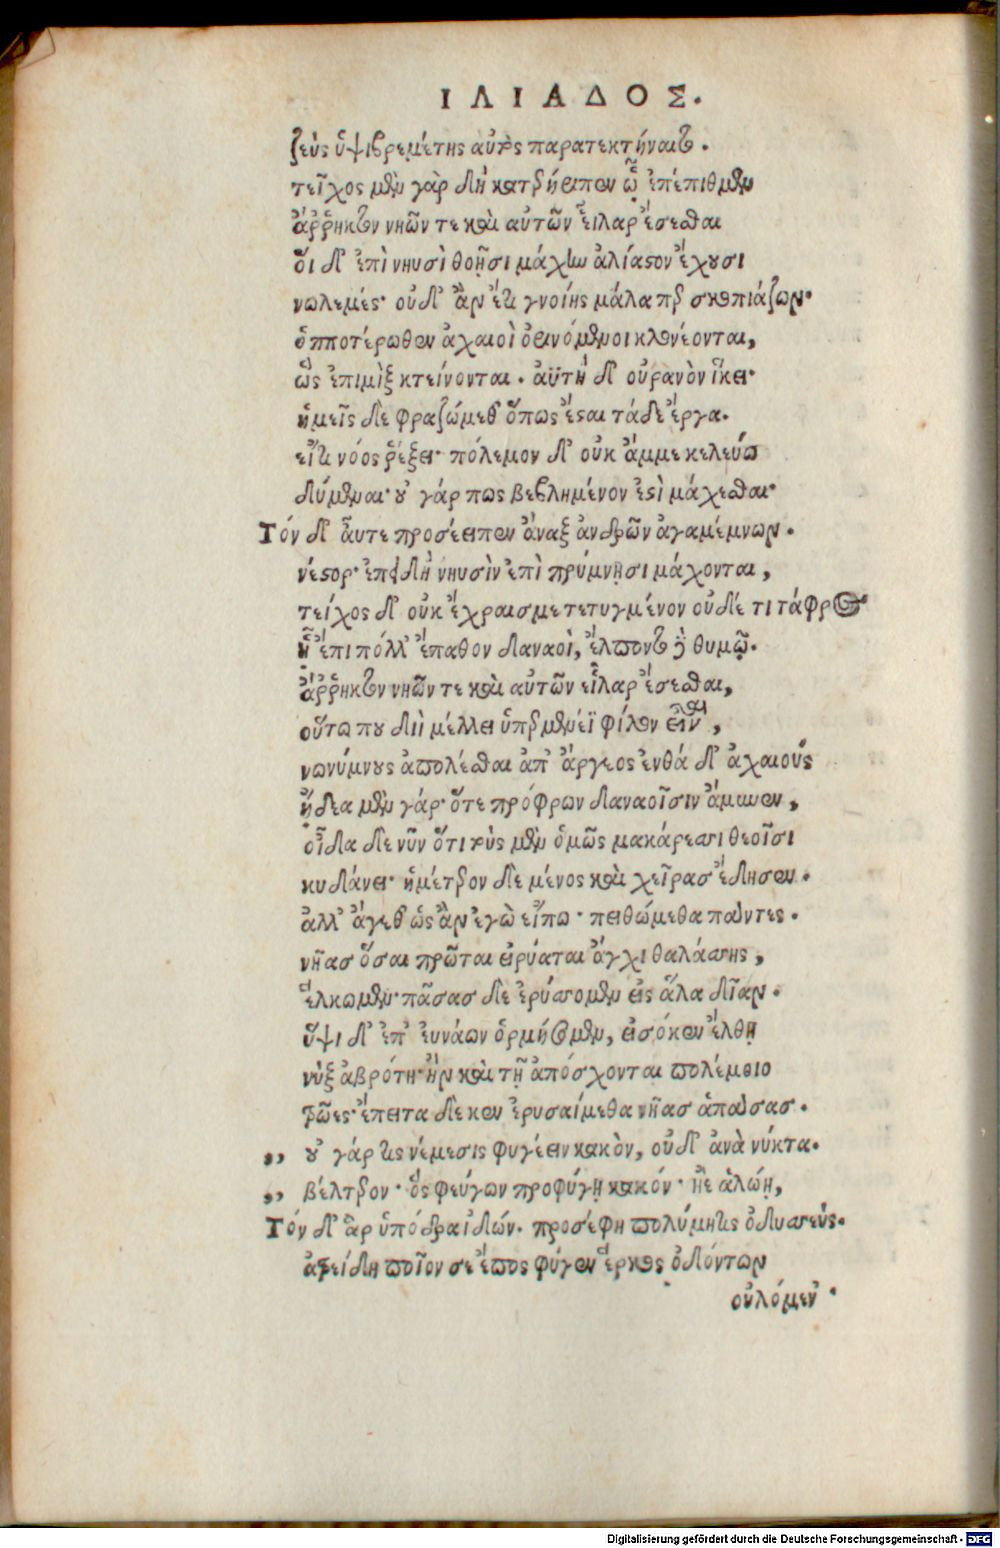 ΙΛΙΑΔΟΣ.
ζεὺς ὑψιβρεμέτης αὐτὸς παρατεκτήναιτο.
τεῖχος μὲν γὰρ δὴ κατερήειπεν ᾧ ἐπέπιθμεν
ἄῤῥηκτον νηῶν τε καὶ αὐτῶν εἶλαρ ἔσεσθαι
οἱ δ' ἐπὶ νηυσὶ θοῇσι μάχην ἀλίαστον ἔχουσι
νωλεμές· οὐδ' ἂν ἔτι γνοίης μάλα περ σκοπιάζων·
ὁπποτέρωθεν ἀχαιοὶ ὀρινόμενοι κλονέονται,
ὡς ἐπιμὶξ κτείνονται. ἀϋτὴ δ' οὐρανὸν ἵκει·
ἡμεῖς δὲ φραζώμεθ' ὅπως ἔσται τάδε ἔργα.
εἴ τι νόος ῥέξει· πόλεμον δ' οὐκ ἄμμε κελεύω
δύμεναι· οὐ γάρ πως βεβλημένον ἐστὶ μάχεσθαι·
Τόν δ' αὖτε προσέειπεν ἄναξ ἀνδρῶν ἀγαμέμνων.
νέστορ· ἐπειδὴ νηυσὶν ἐπὶ πρύμνῃσι μάχονται,
τείχος δ' οὐκ ἔχραισμε τετυγμένον οὐδέ τι τάφρος
ᾗ ἔπι πόλλ' ἔπαθον δαναοὶ, ἔλποντο δὲ θυμῷ.
ἄῤῥηκτον νηῶν τε καὶ αὐτῶν εἶλαρ ἔσεσθαι,
οὕτω που διὶ μέλλει ὑπερμενέϊ φίλον εἶναι,
νωνύμνους ἀπολέσθαι ἀπ' ἄργεος ἐνθά δ' ἀχαιούς
ᾔδεα μὲν γάρ· ὅτε πρόφρων δαναοῖσιν ἄμυνεν,
οἶδα δὲ νῦν ὅτι τοὺς μὲν ὁμῶς μακάρεσσι θεοῖσι
κυδάνει· ἡμέτερον δὲ μένος καὶ χεῖρας ἔδησεν.
ἀλλ' ἄγεθ' ὡς ἂν ἐγὼ εἴπω· πειθώμεθα πάντες.
νῆας ὅσαι πρῶται εἰρύαται ἄγχι θαλάσσης,
ἕλκωμεν· πᾶσας δὲ ἐρύσσομεν εἰς ἅλα δῖαν.
ὕψι δ' ἐπ' ἐυνάων ὁρμήσομεν, εἰσόκεν ἔλθῃ
νὺξ ἀβρότη· ἢν καὶ τῇ ἀπόσχονται πολέμοιο
τρῶες· ἔπειτα δὲ κεν ἐρυσαίμεθα νῆας ἁπάσας.
,, οὐ γάρ τις νέμεσις φυγέειν κακὸν, οὐδ' ἀνὰ νύκτα.
,, βέλτερον· ὃς φεύγων προφύγῃ κακόν· ἠὲ ἁλώῃ,
Τόν δ' ἂρ ὑπόδρα ἰδών. προσέφη πολύμητις ὀδυσσεύς.
ἀτρείδη ποῖον σε ἔπος φύγεν ἕρκος ὀδόντων
οὐλόμεν'
Digitalisierung gefördert durch die Deutsche Forschungsgemeinschaft - DFG